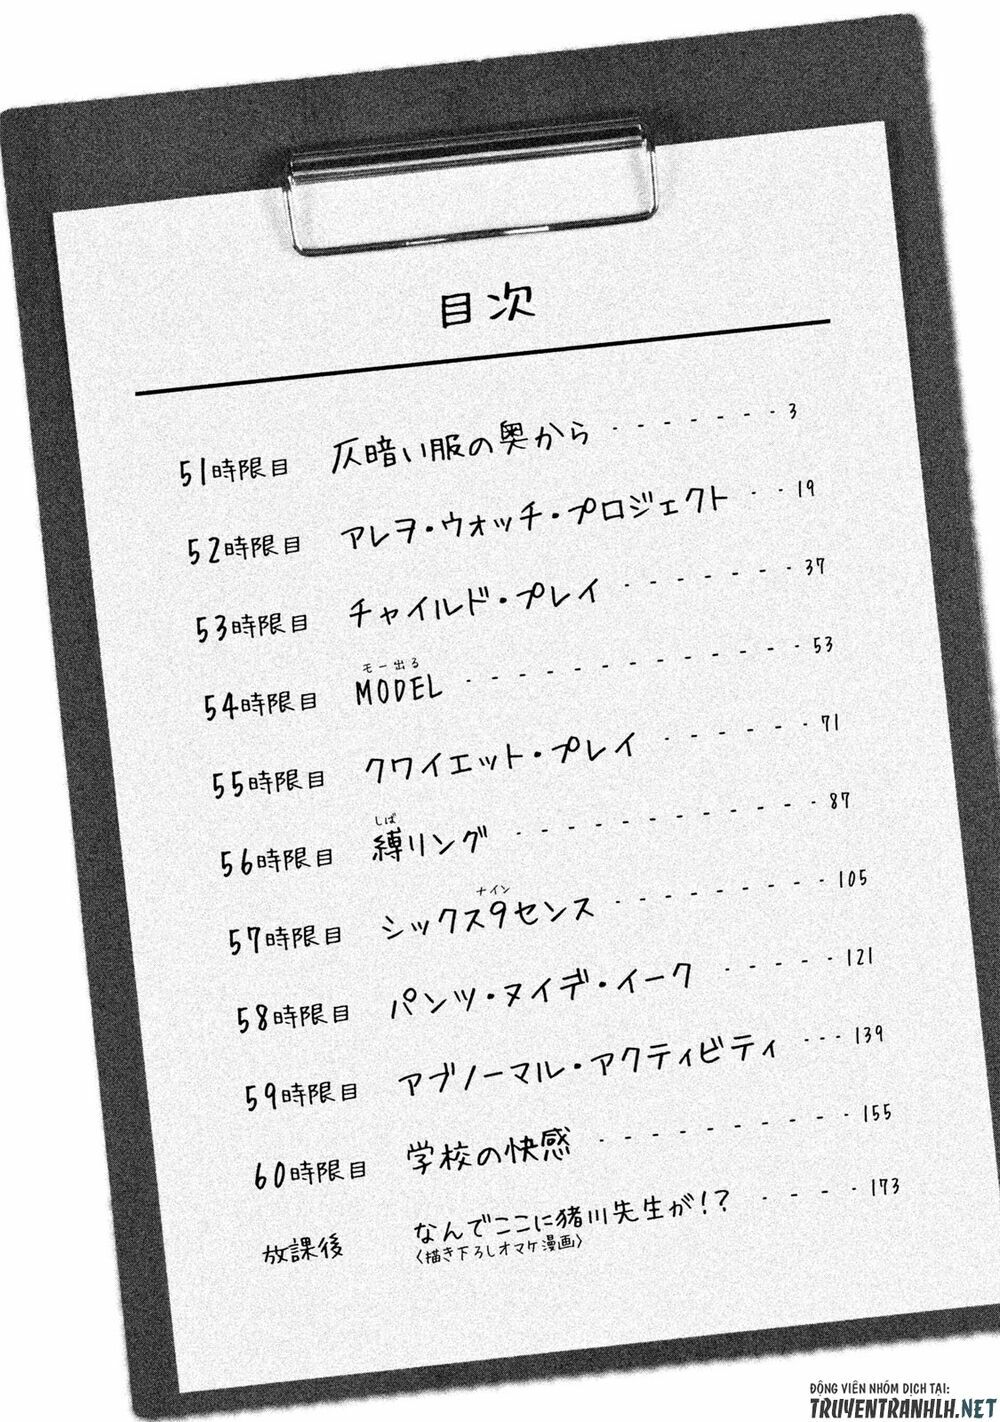 目次
51時限目 仄暗い服の奥から ‐‐‐‐‐‐‐ 3
52時限目 アレヲ・ウォッチ・プロジェクト ‐‐ 19
53時限目 チャイルド・プレイ ‐‐‐‐‐‐‐ 37
モー出る
54時限目 MODEL ‐‐‐‐‐‐‐‐‐‐‐‐‐ 53
55時限目 クワイエット・プレイ ‐‐‐‐‐‐ 71
しば
56時限目 縛リング ‐‐‐‐‐‐‐‐‐‐‐‐ 87
ナイン
57時限目 シックス9センス ‐‐‐‐‐‐‐‐‐ 105
58時限目 パンツ・ヌイデ・イーク ‐‐‐‐‐ 121
59時限目 アブノーマル・アクティビティ ‐‐‐ 139
60時限目 学校の快感 ‐‐‐‐‐‐‐‐‐‐ 155
放課後 なんでここに猪川先生が!? ‐‐‐‐ 173
〈描き下ろしオマケ漫画〉
ĐỘNG VIÊN NHÓM DỊCH TẠI:
TRUYENTRANHLH.NET